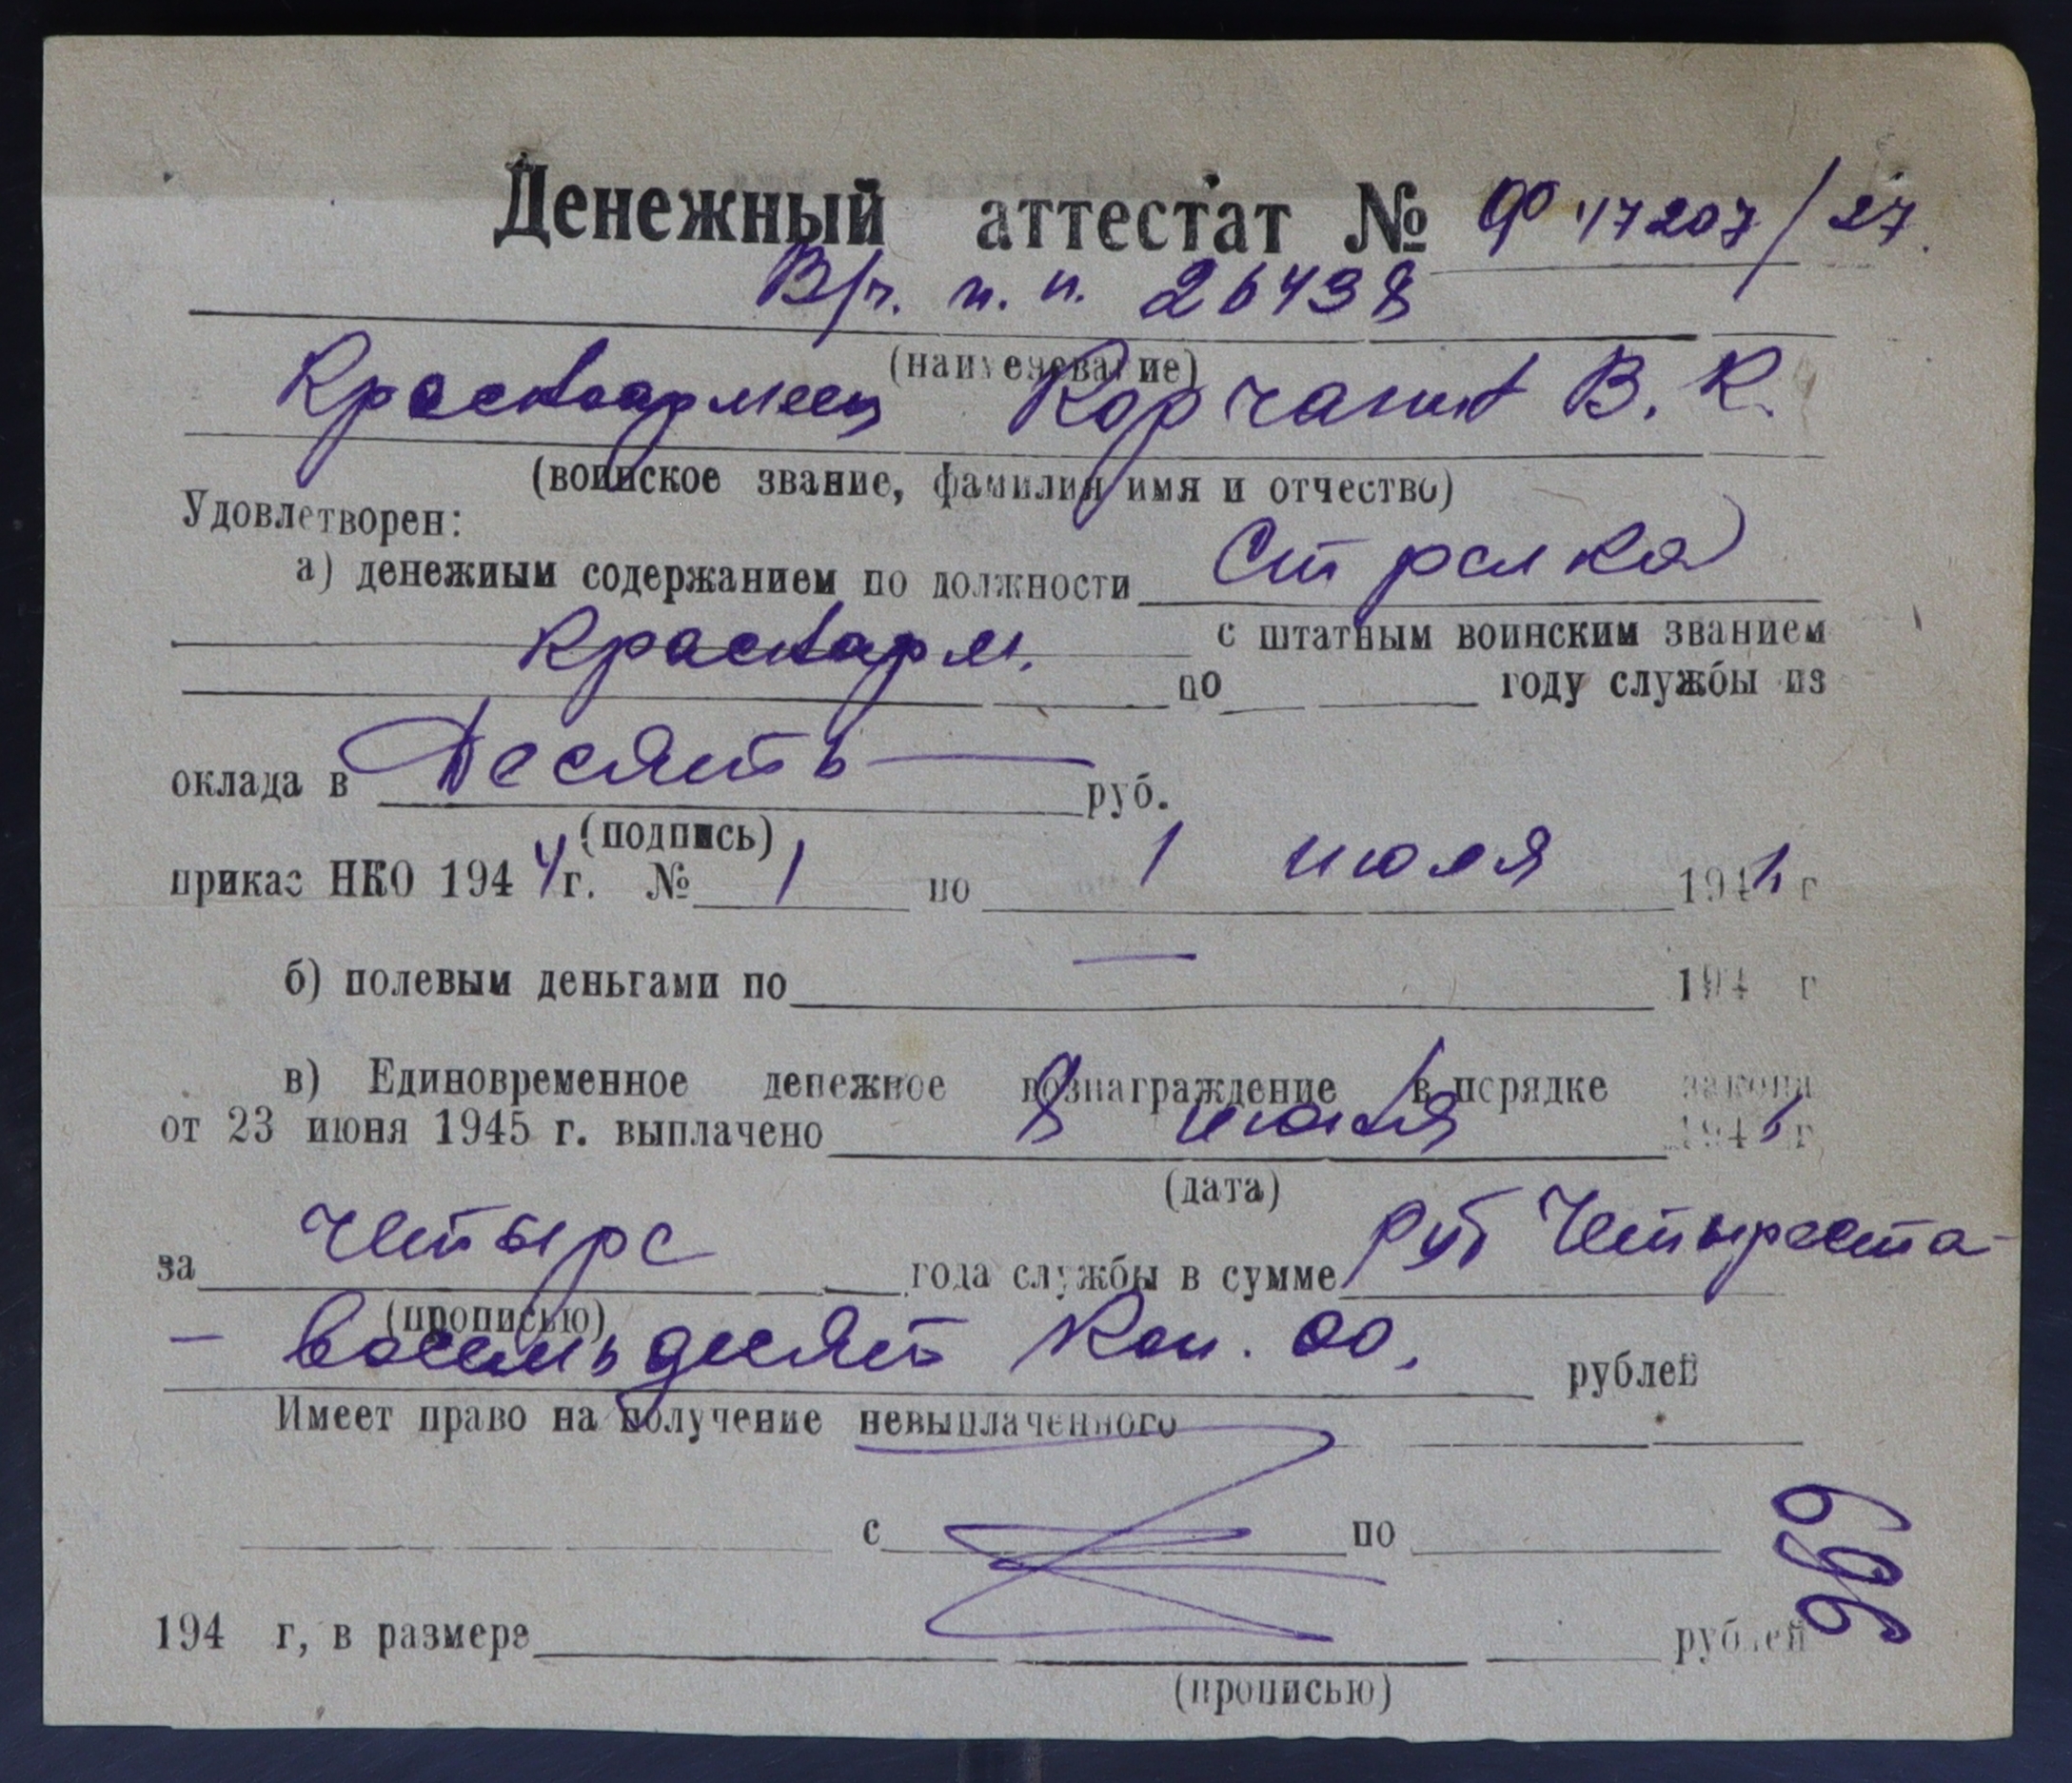 Денежный аттестат № Ф 47207/27.
В/ч. п. п. 26438
(наименование)
Красноармеец Корчагин В. К.
(воинское звание, фамилия имя и отчество)
Удовлетворен:
а) денежным содержанием по должности Стрелка
с штатным воинским званием
Красноарм.
по году службы из
оклада в Десять — руб.
(подпись)
приказ НКО 1944 г. № 1 по 1 июля 194 г
б) полевым деньгами по — 194 г
в) Единовременное денежное вознаграждение в порядке закона
от 23 июня 1945 г. выплачено 8 июля 194 г
(дата)
за четыре года службы в сумме руб Четыреста-
(прописью)
- восемьдесят коп. 00. рублей
Имеет право на получение невыплаченного
с по
194 г, в размере рублей
(прописью)